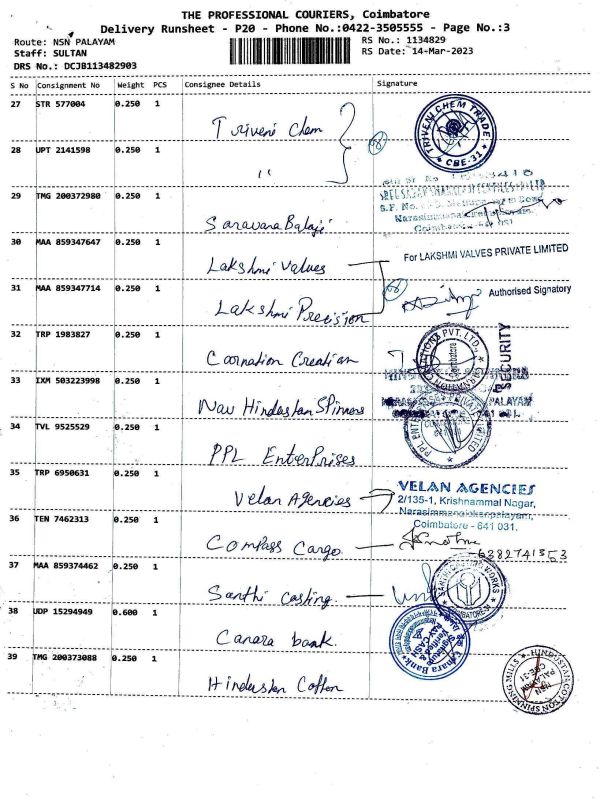 THE PROFESSIONAL COURIERS, Coimbatore
Delivery Runsheet - P20 - Phone No.:0422-3505555 - Page No.:3
Route: NSN PALAYAM
RS No.: 1134829
Staff: SULTAN
RS Date: 14-Mar-2023
DRS No.: DCJB113482903
S No Consignment No Weight PCS Consignee Details Signature
27 STR 577004 0.250 1 Triveni Chem
TRIVENI CHEM TRADE
CBE-31
28 UPT 2141598 0.250 1 "
29 TMG 200372980 0.250 1 Saravana Balaji
30 MAA 859347647 0.250 1 Lakshmi Valves
For LAKSHMI VALVES PRIVATE LIMITED
31 MAA 859347714 0.250 1 Lakshmi Precision
Authorised Signatory
32 TRP 1983827 0.250 1 Coornation Creation
SECURITY
33 IXM 503223998 0.250 1 Nav Hindustan Spinners
34 TVL 9525529 0.250 1 PPL EnterPrises
35 TRP 6950631 0.250 1 Velan Agencies
VELAN AGENCIES
2/135-1, Krishnammal Nagar,
Narasimmanaickenpalayam,
Coimbatore - 641 031.
36 TEN 7462313 0.250 1 Compass Cargo
6382741553
37 MAA 859374462 0.250 1 Santhi casting
38 UDP 15294949 0.600 1 Canara bank
Canara Bank
39 TMG 200373088 0.250 1 Hindustan Cotton
HINDUSTAN COTTON SPINNING MILLS
NSN
PALAYAM
CBE-31